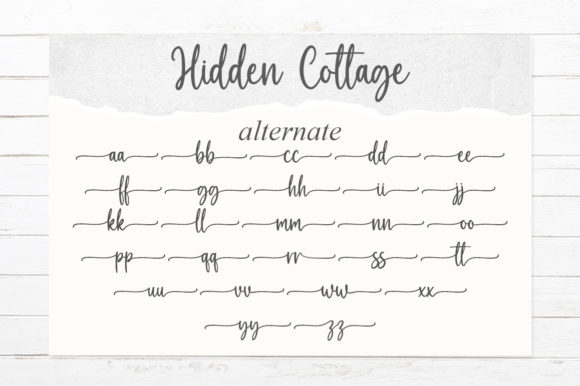 Hidden Cottage
alternate
aa bb cc dd ee
ff gg hh ii jj
kk ll mm nn oo
pp qq rr ss tt
uu vv ww xx
yy zz